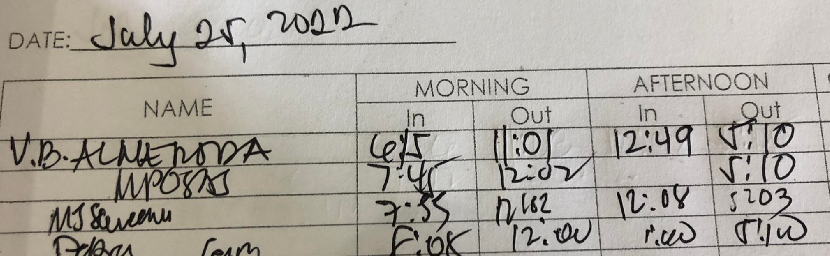 DATE: July 25, 2022
MORNING AFTERNOON
NAME In Out In Out
V.B. ALMENODA 6:15 11:01 12:49 5:10
7:45 12:02 5:10
MJ 7:55 12:02 12:08 5:03
12:00 1:00 5:10